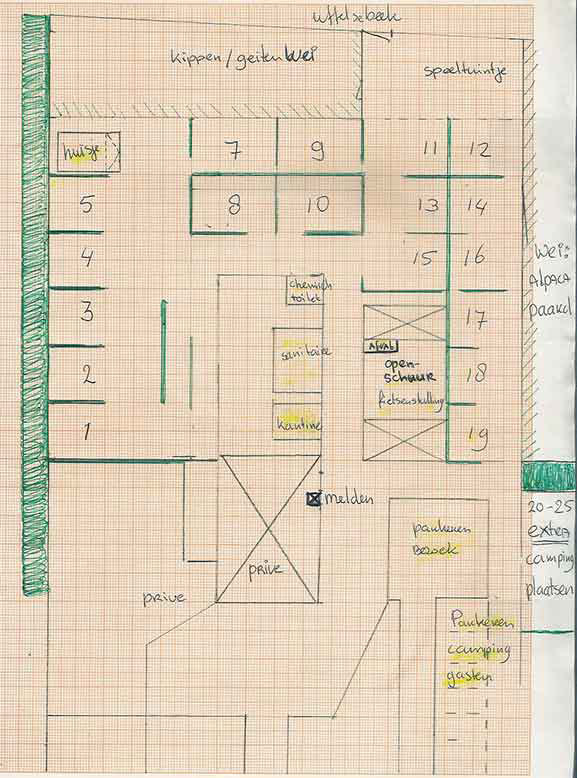 uffelsebeek
kippen/geiten wei
speeltuintje
huisje
7
9
11
12
5
8
10
13
14
4
15
16
wei:
ALPACA
paard
3
chemisch
toilet
17
2
sanitaire
AFVAL
open-
schuur
fietsenstalling
18
1
kantine
19
melden
20-25
extra
camping
plaatsen
parkeren
Bezoek
prive
prive
Parkeren
camping
gasten